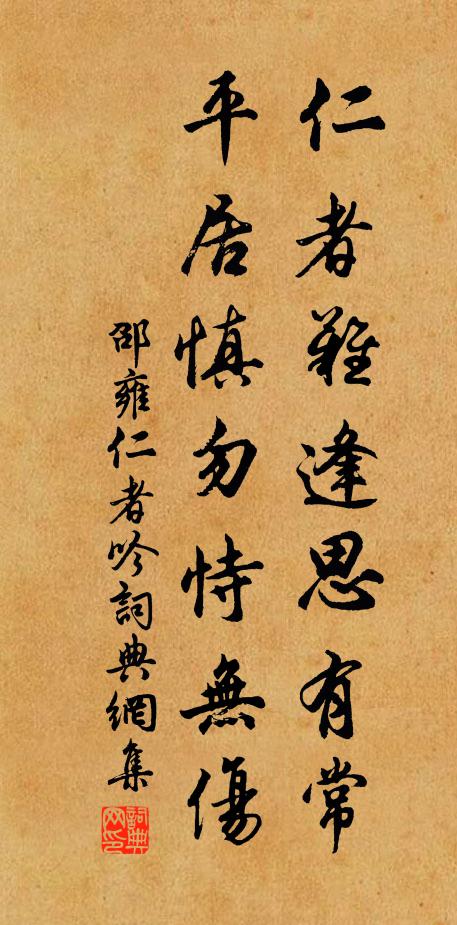 仁者難逢思有常
平居慎勿恃無傷
邵雍仁者吟詞典網集
詞典网印